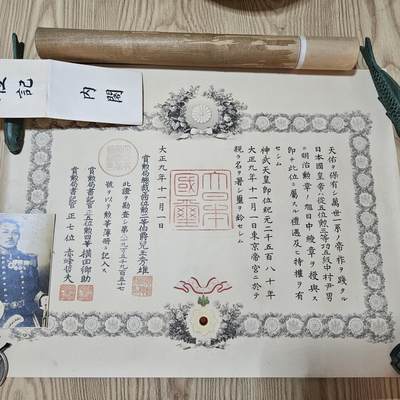 天佑ヲ保有シ萬世一系ノ帝祚ヲ踐タル
日本國皇帝ハ從五位勲三等功五級中村尹男
ニ明治勲章ノ旭日中綬章ヲ授與ス
即チ此位ニ屬スル禮遇及ヒ特權ヲ有
セシム
神武天皇即位紀元二千五百八十年
大正九年十一月一日東京帝宮ニ於テ
親ラ名ヲ署シ璽ヲ鈐セシム
大日本國璽
大正九年十一月一日
賞勲局總裁 勲二等伯爵兒玉秀雄
此證ヲ勘査シ第 五十七
號ヲ以テ勲等簿冊ニ記入ス
賞勲局書記官 五位勲四等横田郷助
賞勲局書記官 正七位
內閣
記